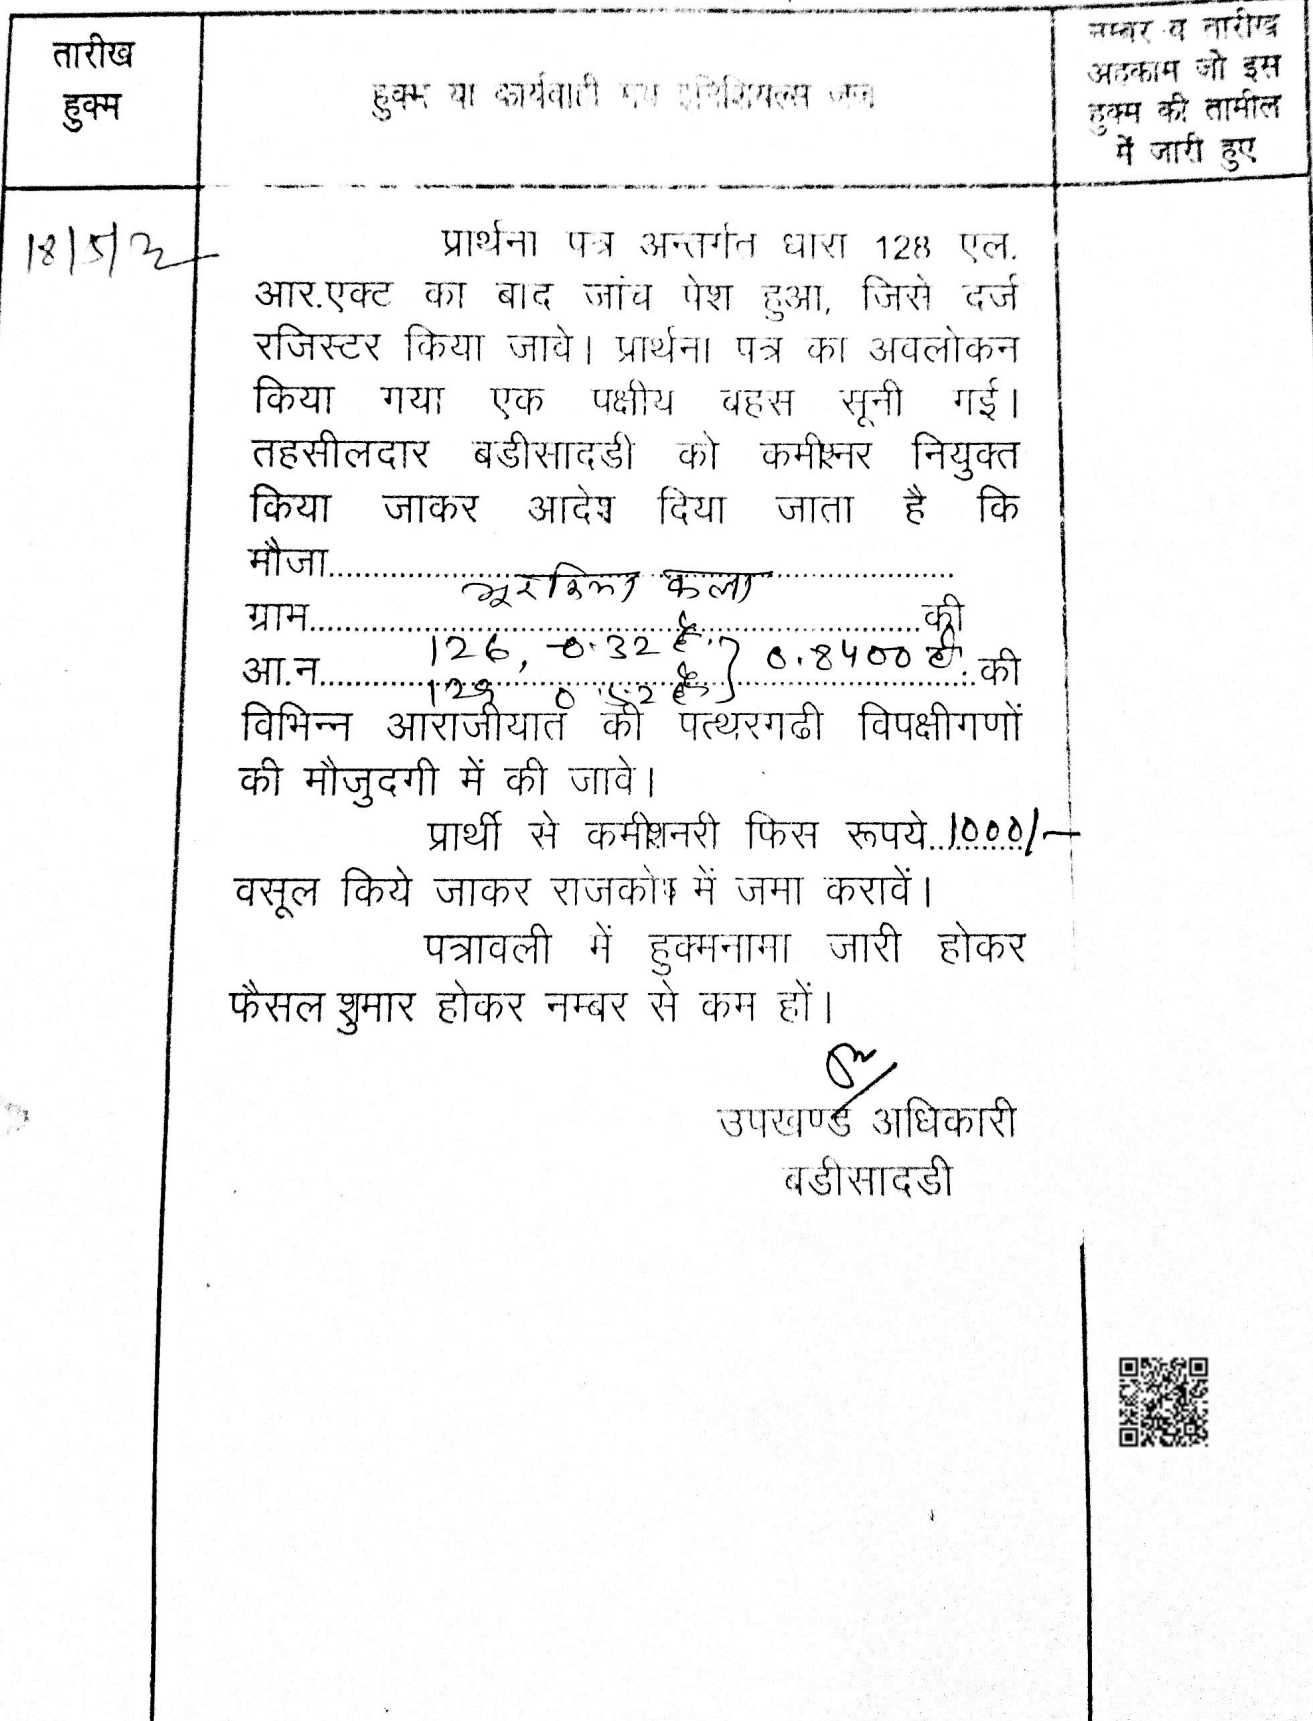 तारीख
हुक्म
हुक्म या कार्यवाही मय इनिशियल्स जज
नम्बर व तारीख
अहकाम जो इस
हुक्म की तामील
में जारी हुए
18/5/22
प्रार्थना पत्र अन्तर्गत धारा 128 एल.
आर.एक्ट का बाद जांच पेश हुआ, जिसे दर्ज
रजिस्टर किया जावे। प्रार्थना पत्र का अवलोकन
किया गया एक पक्षीय वहस सूनी गई।
तहसीलदार बडीसादडी को कमीश्नर नियुक्त
किया जाकर आदेश दिया जाता है कि
मौजा
कला
ग्राम की
126, 0.32 है.
आ.न 0.8400 है. की
129 0.52 है
विभिन्न आराजीयात की पत्थरगढी विपक्षीगणों
की मौजुदगी में की जावे।
प्रार्थी से कमीशनरी फिस रूपये 1000/-
वसूल किये जाकर राजकोष में जमा करावें।
पत्रावली में हुक्मनामा जारी होकर
फैसल शुमार होकर नम्बर से कम हों।
उपखण्ड अधिकारी
बडीसादडी